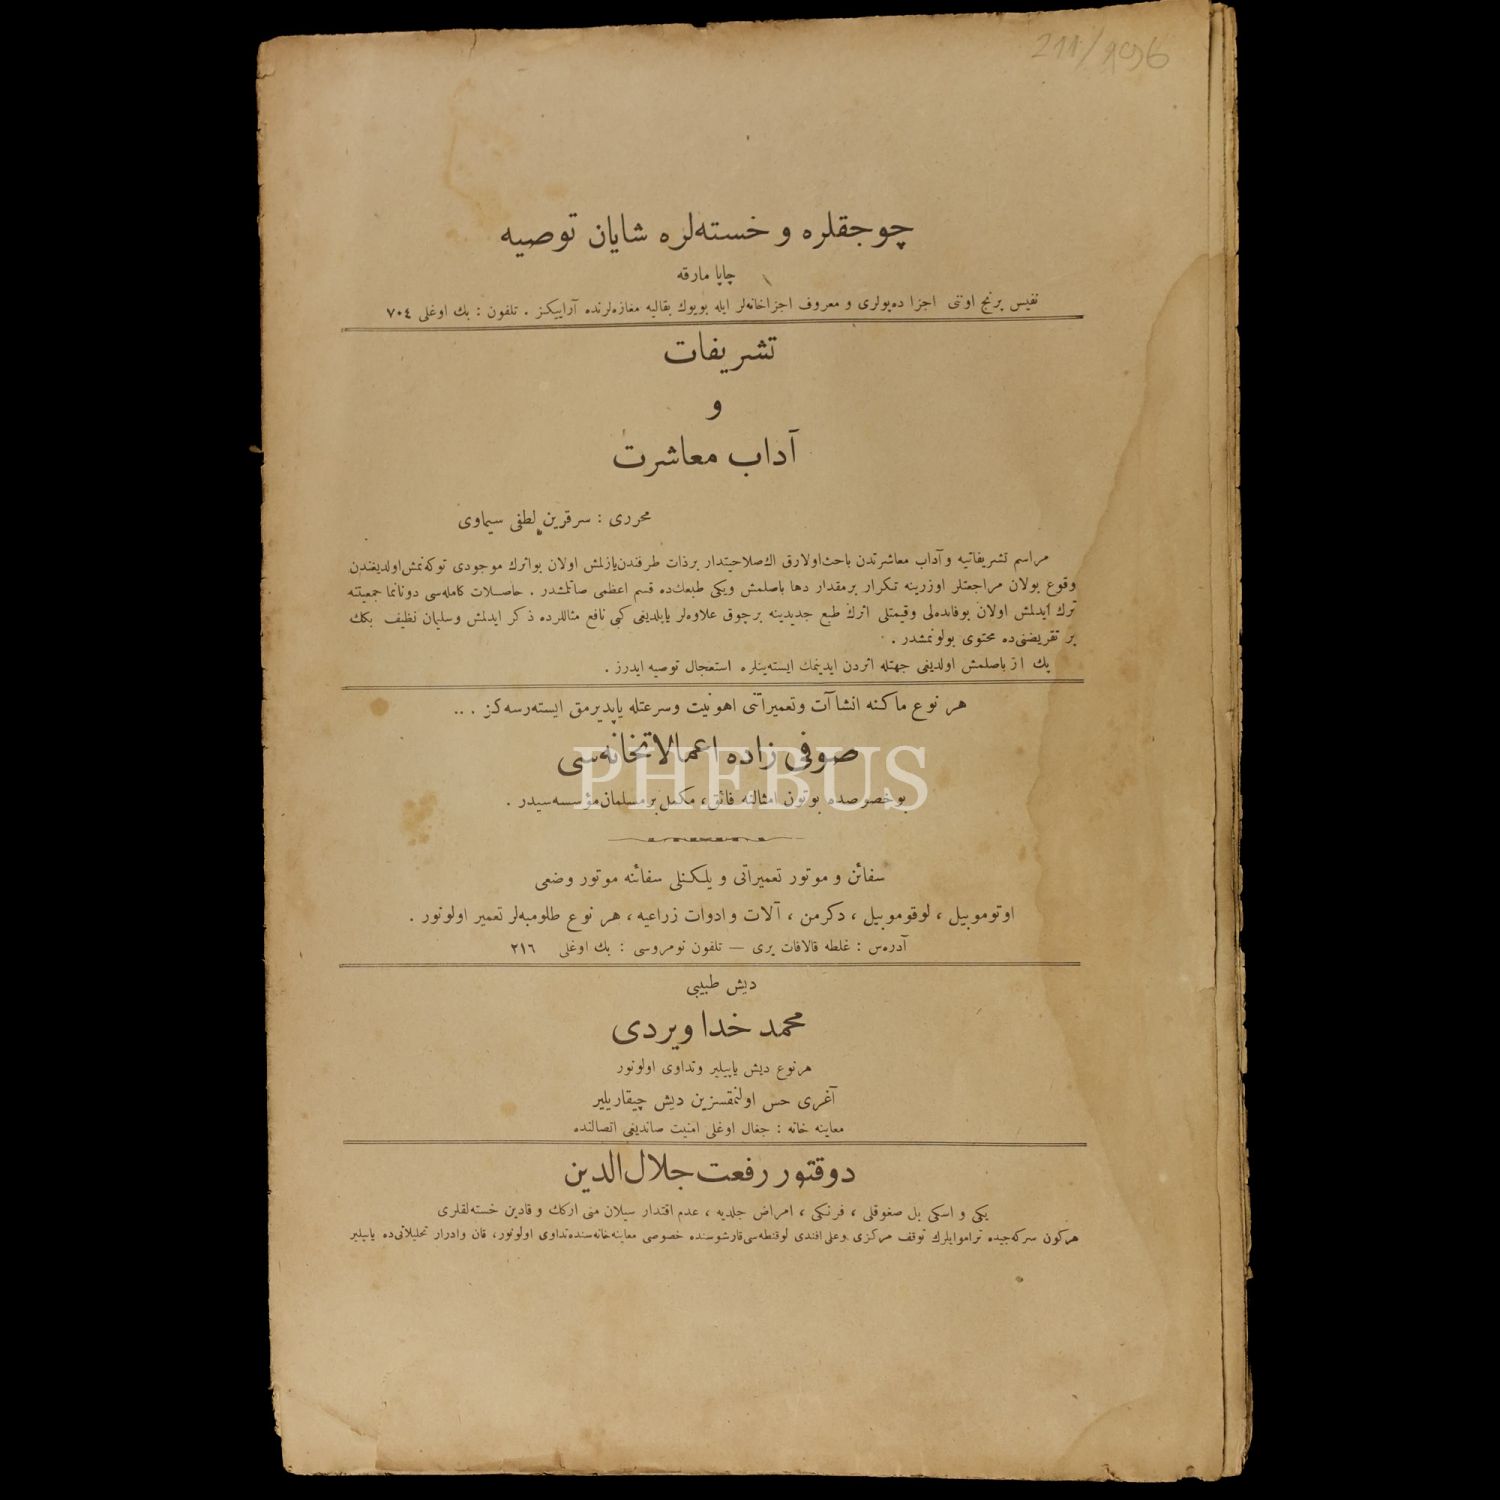 211/1996
چوجقلره و خسته‌لره شایان توصیه
چاپا مارقه
نفیس پرنج اونی اجزا ده‌پولری و معروف اجزاخانه‌لر ایله بویوك بقالیه مغازه‌لرنده آراییكز . تلفون : بك اوغلی ۷۰٤
تشریفات
و
آداب معاشرت
محرری : سرقرین لطفی سیماوی
مراسم تشریفاتیه و آداب معاشرتدن باحث اولارق اك صلاحیتدار برذات طرفندن یازلمش اولان بو اثرك موجودی توكه‌نمش اولدیغندن
وقوع بولان مراجعتلر اوزرینه تكرار برمقدار دها باصلمش ویكی طبعك‌ده قسم اعظمی صاتلمشدر . حاصلات كامله‌سی دونانما جمعیتنه
ترك ایدلمش اولان بوفائده‌لی وقیمتلی اثرك طبع جدیدینه برچوق علاوه‌لر یاپلدیغی كبی نافع مثاللرده ذكر ایدلمش وسلیمان نظیف بكك
بر تقریضنی‌ده محتوی بولونمشدر .
پك از باصلمش اولدیغی جهتله اثردن ایدینمك ایسته‌ینلره استعجال توصیه ایدرز .
هر نوع ماكنه انشاآت وتعمیراتنی اهونیت وسرعتله یاپدیرمق ایسته‌رسه‌كز . ..
صوفی زاده اعمالاتخانه‌سی
PHEBUS
بوخصوصده بوتون امثالنه فائق، مكمل برمسلمان مؤسسه‌سیدر .
سفائن و موتور تعمیراتی و یلكنلی سفائنه موتور وضعی
اوتوموبیل ، لوقوموبیل ، دكرمن ، آلات و ادوات زراعیه ، هر نوع طلومبه‌لر تعمیر اولونور .
آدره‌س : غلطه قالافات یری — تلفون نومروسی : بك اوغلی ۲۱٦
دیش طبیبی
محمد خدا ویردی
هرنوع دیش یاپیلیر وتداوی اولونور
آغری حس اولنمقسزین دیش چیقاریلیر
معاینه خانه : جغال اوغلی امنیت صاندیغی اتصالنده
دوقتور رفعت جلال‌الدین
یكی و اسكی بل صغوقلی ، فرنكی ، امراض جلدیه ، عدم اقتدار سیلان منی اركك و قادین خسته‌لقلری
هركون سركه‌جیده تراموایلرك توقف مركزی وعلی افندی لوقنطه‌سی قارشوسنده خصوصی معاینه‌خانه‌سنده تداوی اولونور، قان وادرار تحلیلاتی‌ده یاپیلیر